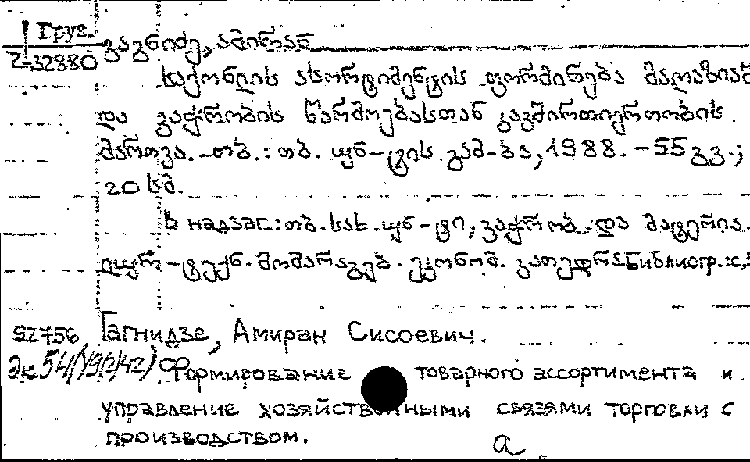 Груз.
2-32880
გაგნიძე, ამირან
საქონლის ასორტიმენტის ფორმირება მაღაზიაში
და ვაჭრობის წარმოებასთან კავშირურთიერთობის
მართვა. - თბ. : თბ. უნ-ტის გამ-ბა, 1988. - 55 გვ.;
20 სმ.
В надзаг.: თბ. სახ. უნ-ტი, ვაჭრობ. და მატერია.
ლურ-ტექნ. მომარაგებ. ეკონომ. კათედრა Библиогр.:
S2756 Гагнидзе, Амиран Сисоевич.
Формирование товарного ассортимента и
управление хозяйственными связями торговли с
производством.
а